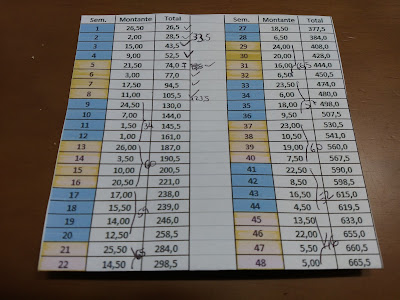 Sem. Montante Total
1 26,50 26,5
2 2,00 28,5 33,5
3 15,00 43,5
4 9,00 52,5
5 21,50 74,0
6 3,00 77,0
7 17,50 94,5
8 11,00 105,5
9 24,50 130,0
10 7,00 144,0
11 1,50 145,5 34
12 1,00 161,0
13 26,00 187,0
14 3,50 190,5
15 10,00 200,5 60
16 20,50 221,0
17 17,00 238,0
18 15,50 239,0
19 14,00 246,0 59
20 12,50 258,5
21 25,50 284,0
22 14,50 298,5 65
27 18,50 377,5
28 6,50 384,0
29 24,00 408,0
30 20,00 428,0
31 16,00 444,0
32 6,50 450,5
33 23,50 474,0
34 6,00 480,0
35 18,00 498,0
36 9,50 507,5
37 23,00 530,5
38 10,50 541,0
39 19,00 560,0 60
40 7,50 567,5
41 22,50 590,0
42 8,50 598,5
43 16,50 615,0
44 4,50 619,5
45 13,50 633,0
46 22,00 655,0
47 5,50 660,5 46
48 5,00 665,5